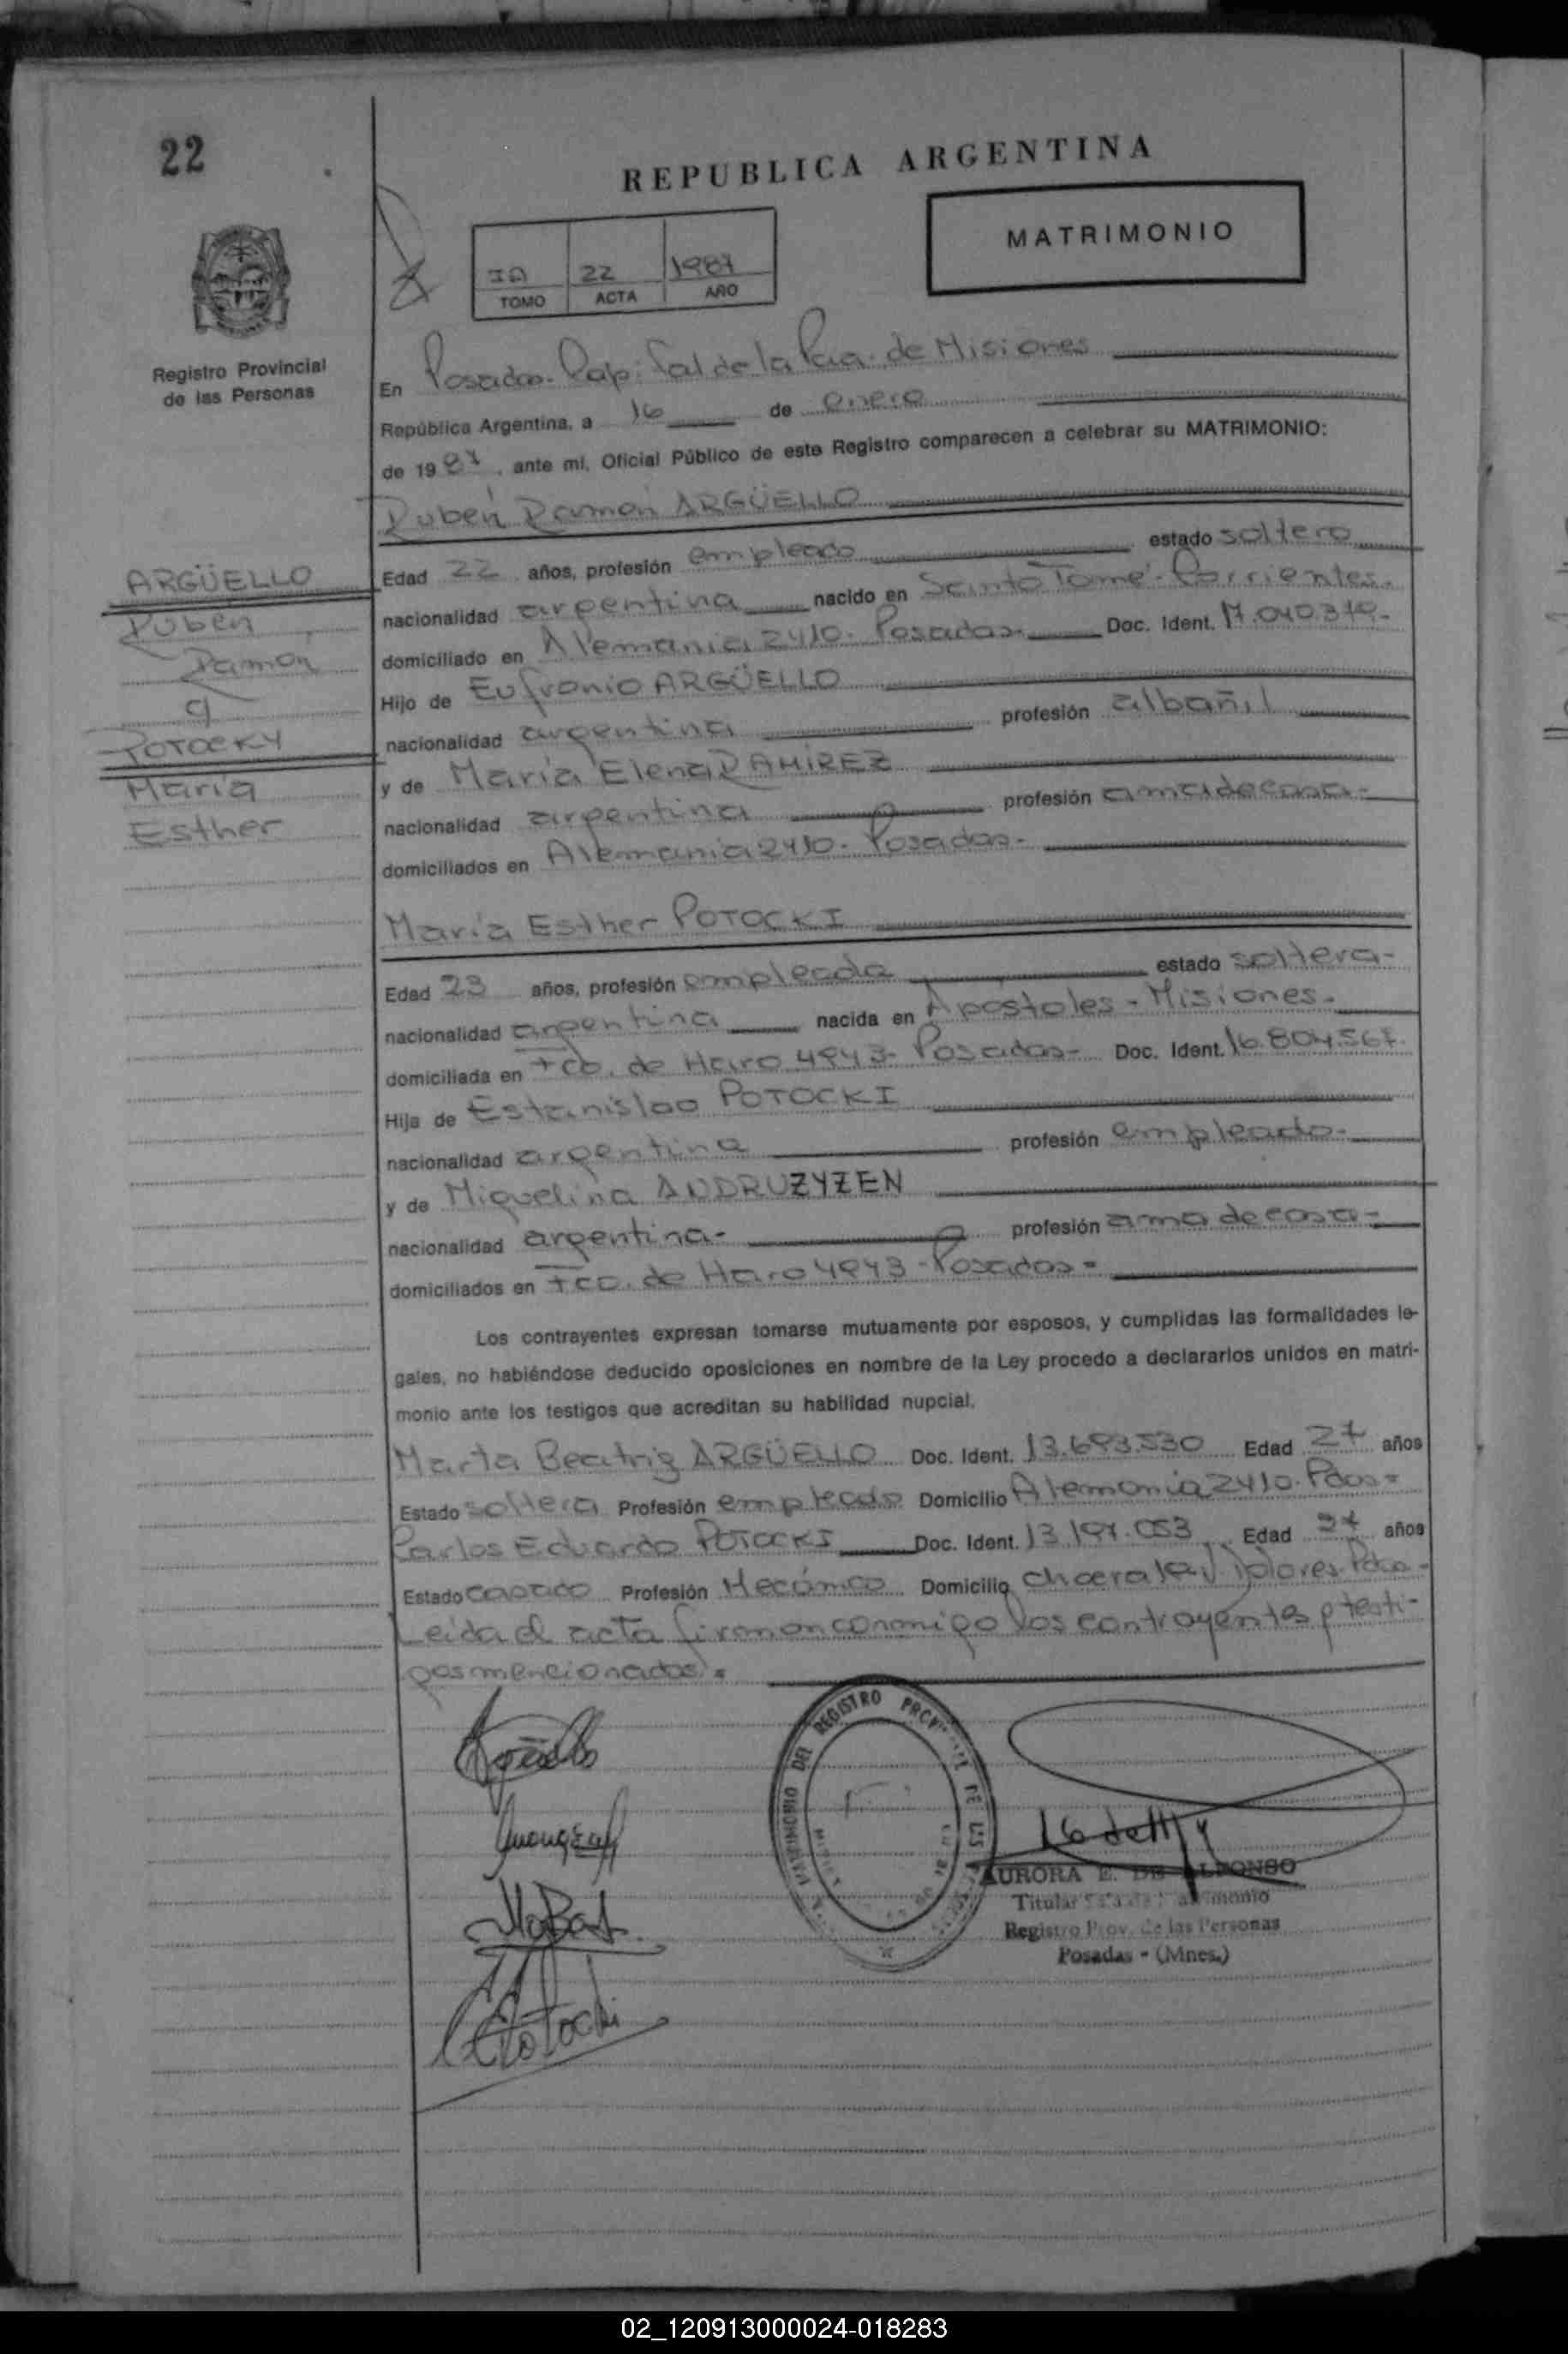 22
REPUBLICA ARGENTINA
MATRIMONIO
22 1987
TOMO ACTA AÑO
Registro Provincial
de las Personas
En Posadas. Capital de la Pcia. de Misiones
República Argentina, a 16 de enero
de 1987, ante mí, Oficial Público de este Registro comparecen a celebrar su MATRIMONIO:
Rubén Ramón ARGÜELLO
ARGÜELLO
Rubén
Ramón
c/
POTOCKY
María
Esther
Edad 22 años, profesión empleado estado soltero
nacionalidad argentina nacido en Santo Tomé - Corrientes.
domiciliado en Alemania 2410. Posadas- Doc. Ident. 17.040.379-
Hijo de Eufronio ARGÜELLO
nacionalidad argentina profesión albañil
y de María Elena RAMIREZ
nacionalidad argentina profesión ama de casa-
domiciliados en Alemania 2410. Posadas-
María Esther POTOCKI
Edad 23 años, profesión empleada estado soltera-
nacionalidad argentina nacida en Apóstoles - Misiones.
domiciliada en Fco. de Haro 4943- Posadas- Doc. Ident. 16.804.567.
Hija de Estanislao POTOCKI
nacionalidad argentina profesión empleado-
y de Miguelina ANDRUZYZEN
nacionalidad argentina- profesión ama de casa-
domiciliados en Fco. de Haro 4943 - Posadas =
Los contrayentes expresan tomarse mutuamente por esposos, y cumplidas las formalidades le-
gales, no habiéndose deducido oposiciones en nombre de la Ley procedo a declararlos unidos en matri-
monio ante los testigos que acreditan su habilidad nupcial.
Marta Beatriz ARGÜELLO Doc. Ident. 13.693.530 Edad 27 años
Estado soltera Profesión empleada Domicilio Alemania 2410. Pdas=
Carlos Eduardo POTOCKI Doc. Ident. 13.197.053 Edad 27 años
Estado casado Profesión Mecánico Domicilio Dolores. Pdas-
Leída el acta firman conmigo los contrayentes y testi-
gos mencionados. =
MATRIMONIO DEL REGISTRO
AURORA E. DE ALFONSO
Titular
Registro Prov. de las Personas
Posadas - (Mnes.)
02_120913000024-018283